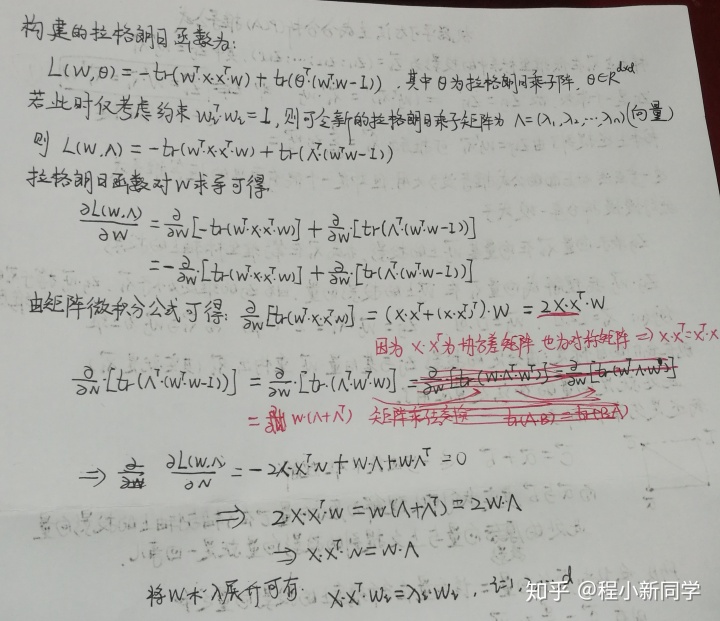 构建的拉格朗日函数为:
L(W,θ) = -tr(W^T·X·X^T·W) + tr(θ^T·(W^T·W-I)) ,其中θ为拉格朗日乘子阵, θ∈R^{d×d}
若此时仅考虑约束 W_i^T·W_i = 1, 则可令新的拉格朗日乘子矩阵为 Λ = (λ_1,λ_2,…λ_n) (向量)
则 L(W,Λ) = -tr(W^T·X·X^T·W) + tr(Λ^T·(W^T·W-I))
拉格朗日函数对W求导可得
∂L(W,Λ)/∂W = ∂/∂W [-tr(W^T·X·X^T·W)] + ∂/∂W [tr(Λ^T·(W^T·W-I))]
= -∂/∂W·[tr(W^T·X·X^T·W)] + ∂/∂W·[tr(Λ^T·(W^T·W-I))]
由矩阵微积分公式可得: ∂/∂W [tr(W^T·X·X^T·W)] = (X·X^T+(X·X^T)^T)·W = 2X·X^T·W
因为 X·X^T 为协方差矩阵 也为对称矩阵 ⇒ X·X^T = X^T·X
∂/∂W·[tr(Λ^T·(W^T·W-I))] = ∂/∂W·[tr(Λ^T·W^T·W)] =
= W·(Λ+Λ^T)
⇒ ∂L(W,Λ)/∂W = -2X·X^T·W + W·Λ + W·Λ^T = 0
⇒ 2X·X^T·W = W(Λ+Λ^T) = 2W·Λ
⇒ X·X^T·W = W·Λ
将W和λ展开可有 X·X^T·W_i = λ_i·W_i , i=1,2…d
知乎 @程小新同学